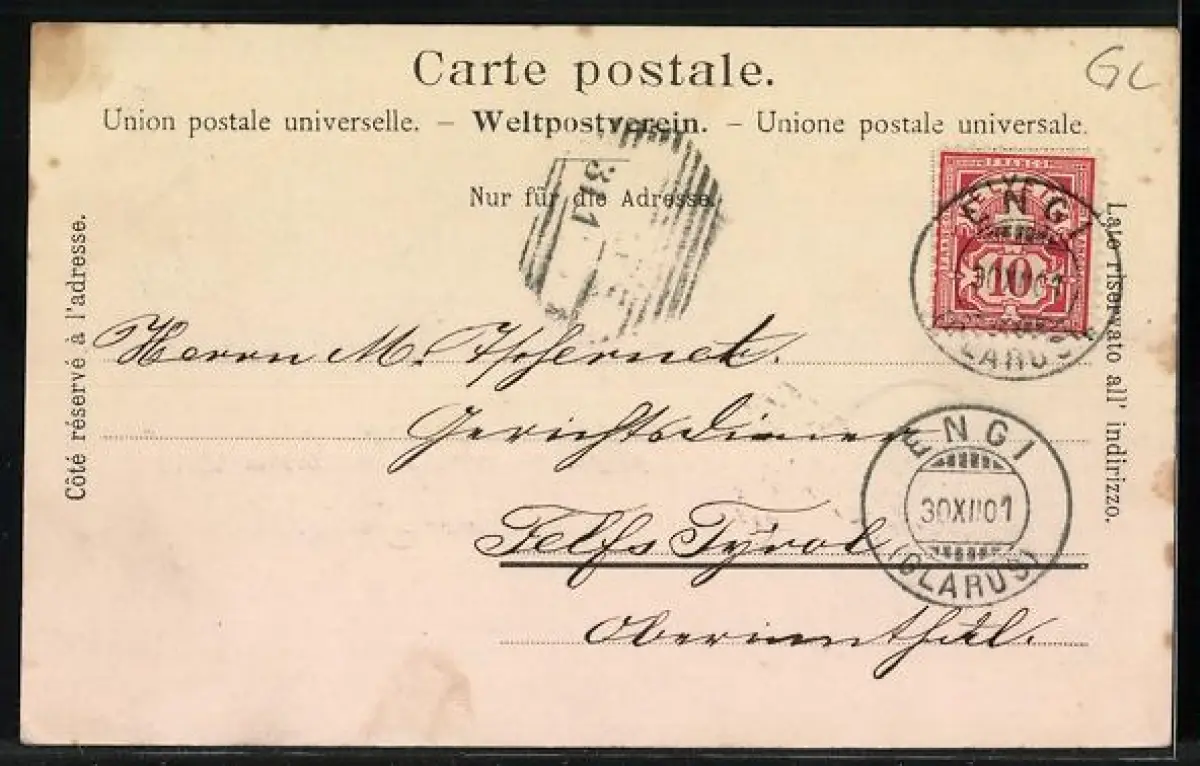 Carte postale.
GL
Union postale universelle. – Weltpostverein. – Unione postale universale.
Nur für die Adresse.
Côté réservé à l'adresse.
Lato riservato all' indirizzo.
FRANCO
HELVETIA
10
ENGI
GLARUS
31 1
Herrn M. Tschernet.
Gerichtsdiener
Telfs Tyrol
Oberinnthal.
ENGI
30XII01
(GLARUS)